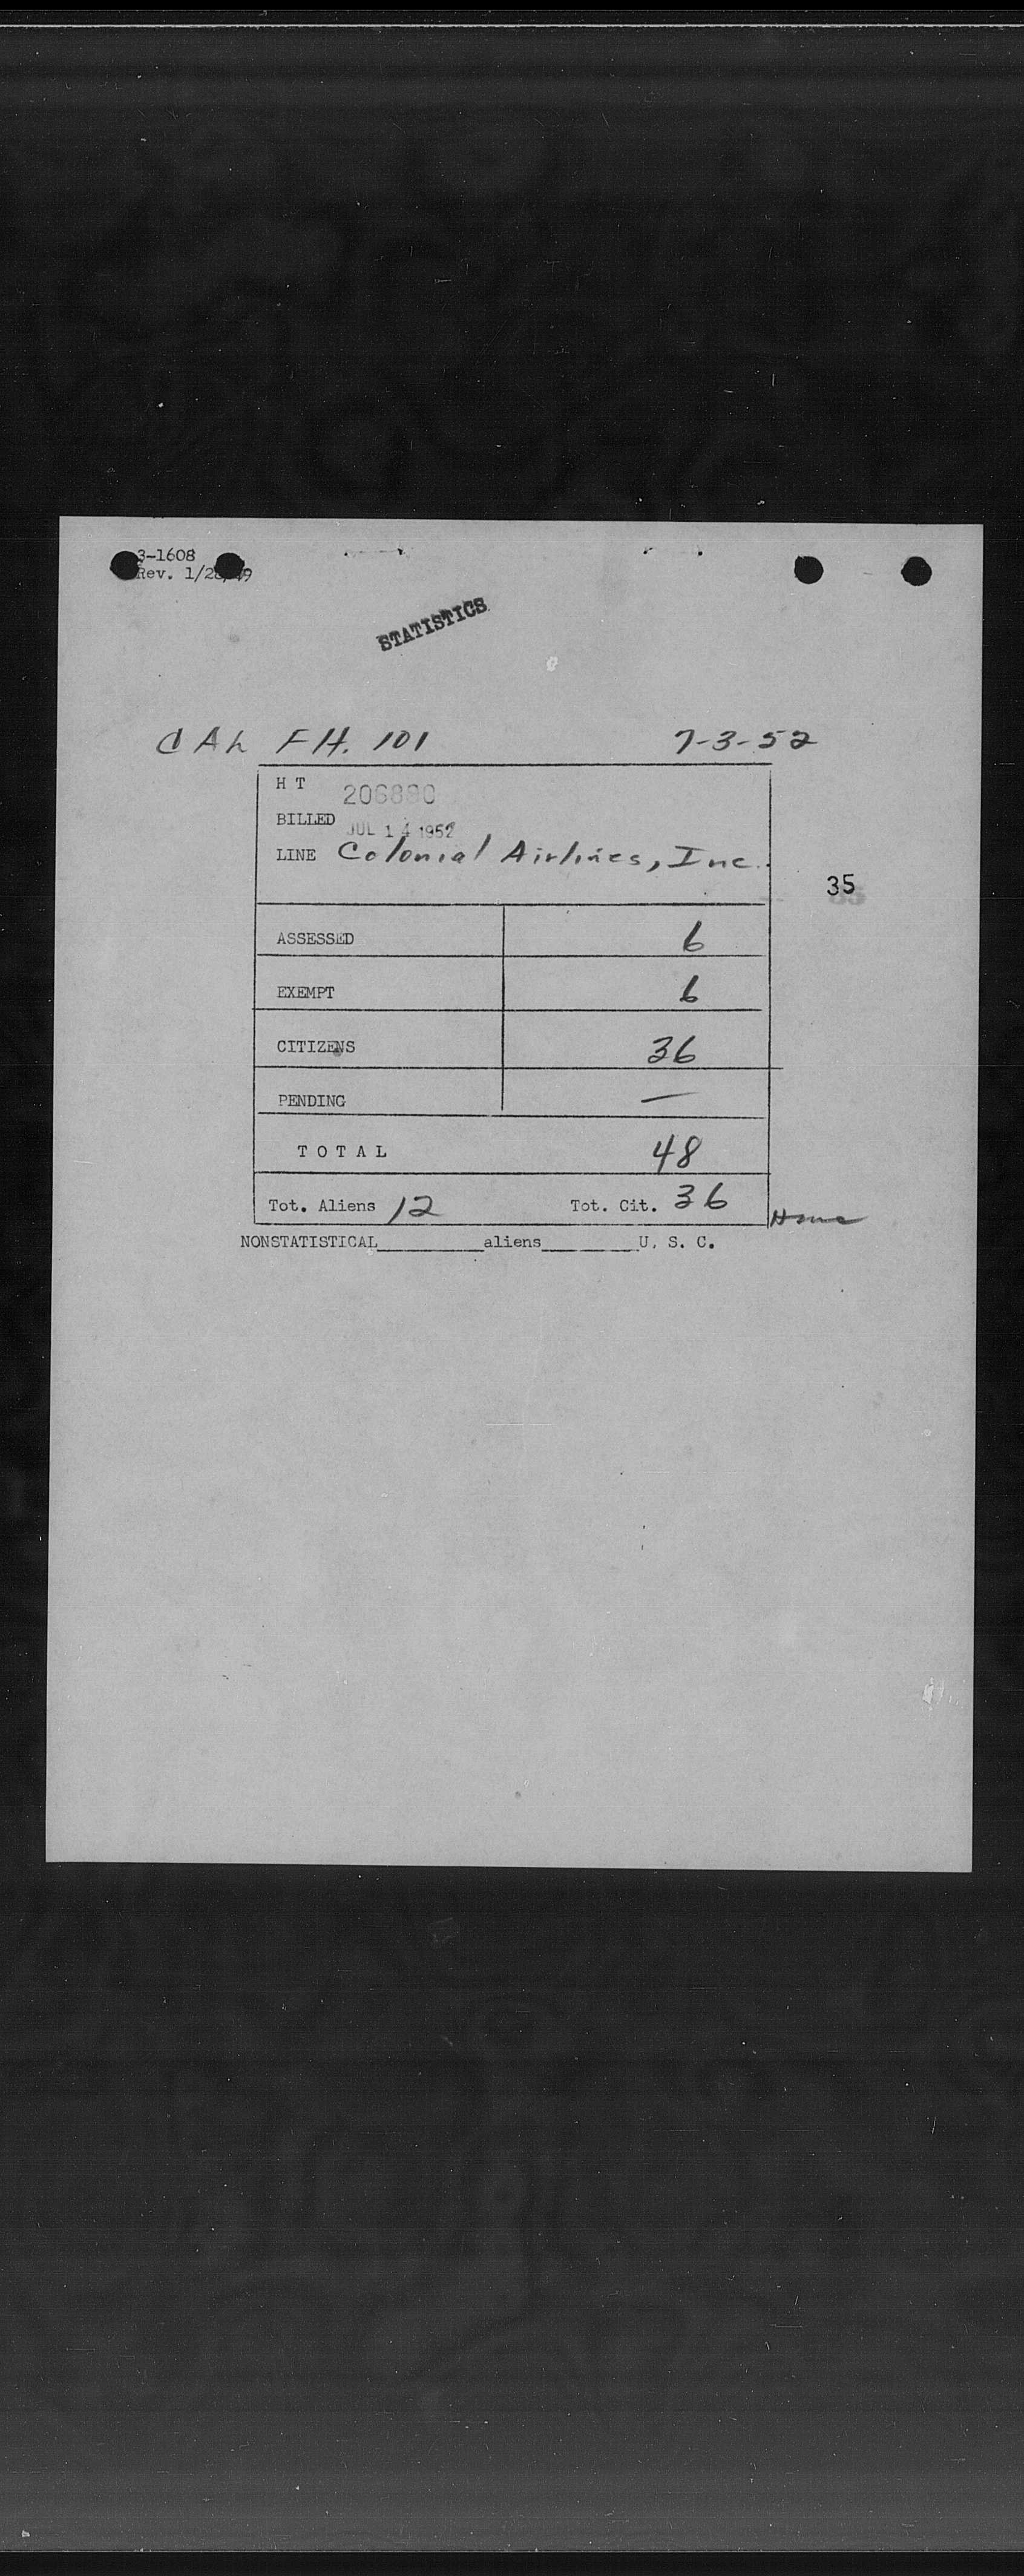 3-1608
Rev. 1/28/49
STATISTICS
CAL FH. 101 7-3-52
H T 206880
BILLED JUL 14 1952
LINE Colonial Airlines, Inc.
35
ASSESSED 6
EXEMPT 6
CITIZENS 36
PENDING —
TOTAL 48
Tot. Aliens 12 Tot. Cit. 36
NONSTATISTICAL________aliens________U. S. C.